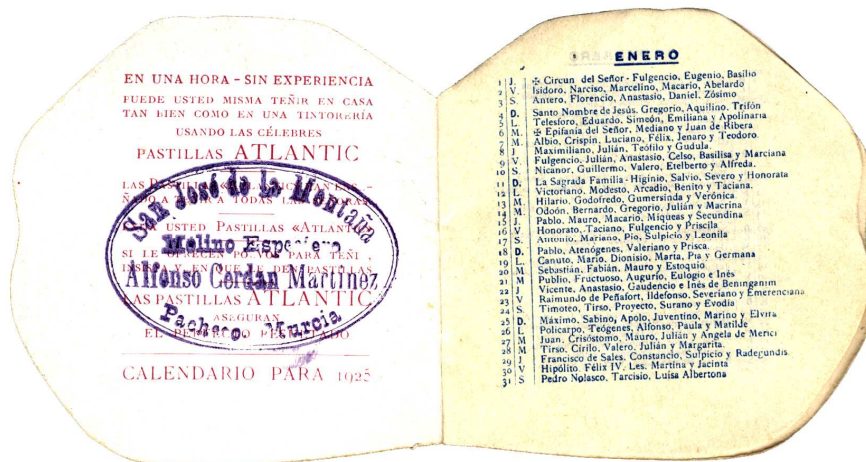 EN UNA HORA - SIN EXPERIENCIA
PUEDE USTED MISMA TEÑIR EN CASA
TAN BIEN COMO EN UNA TINTORERÍA
USANDO LAS CÉLEBRES
PASTILLAS ATLANTIC
LAS PASTILLAS
A TODAS LAS
USTED PASTILLAS «ATLANTIC»
SI LE OFRECEN
PASTILLAS
LAS PASTILLAS ATLANTIC
ASEGURAN
EL PERFECTO
CALENDARIO PARA 1925
San José de la Montaña
Molino Especiero
Alfonso Cerdán Martinez
Pacheco Murcia
ENERO
1 J. ✠ Circun del Señor - Fulgencio, Eugenio, Basilio
2 V. Isidoro, Narciso, Marcelino, Macario, Abelardo
3 S. Antero, Florencio, Anastasio, Daniel, Zósimo
4 D. Santo Nombre de Jesús, Gregorio, Aquilino, Trifón
5 L. Telesforo, Eduardo, Simeón, Emiliana y Apolinaria
6 M. ✠ Epifanía del Señor, Mediano y Juan de Ribera
7 M. Albio, Crispín, Luciano, Félix, Jenaro y Teodoro
8 J Maximiliano, Julián, Teófilo y Gudula.
9 V. Fulgencio, Julián, Anastasio, Celso, Basilisa y Marciana
10 S. Nicanor, Guillermo, Valero, Etelberto y Alfreda.
11 D. La Sagrada Familia - Higinio, Salvio, Severo y Honorata
12 L. Victoriano, Modesto, Arcadio, Benito y Taciana.
13 M. Hilario, Godofredo, Gumersinda y Verónica
14 M. Odoón, Bernardo, Gregorio, Julián y Macrina
15 J. Pablo, Mauro, Macario, Miqueas y Secundina
16 V. Honorato, Taciano, Fulgencio y Priscila
17 S. Antonio, Mariano, Pío, Sulpicio y Leonila
18 D. Pablo, Atenógenes, Valeriano y Prisca.
19 L. Canuto, Mario, Dionisio, Marta, Pía y Germana
20 M Sebastián, Fabián, Mauro y Estoquio.
21 M Publio, Fructuoso, Augurio, Eulogio e Inés
22 J Vicente, Anastasio, Gaudencio e Inés de Beninganim
23 V Raimundo de Peñafort, Ildefonso, Severiano y Emerenciana
24 S. Timoteo, Tirso, Proyecto, Surano y Evodia
25 D. Máximo, Sabino, Apolo, Juventino, Marino y Elvira
26 L Policarpo, Teógenes, Alfonso, Paula y Matilde
27 M Juan, Crisóstomo, Mauro, Julián y Angela de Merici
28 M Tirso, Cirilo, Valero, Julián y Margarita.
29 J Francisco de Sales, Constancio, Sulpicio y Radegundis
30 V Hipólito, Félix IV, Les. Martina y Jacinta
31 S Pedro Nolasco, Tarcisio, Luisa Albertona